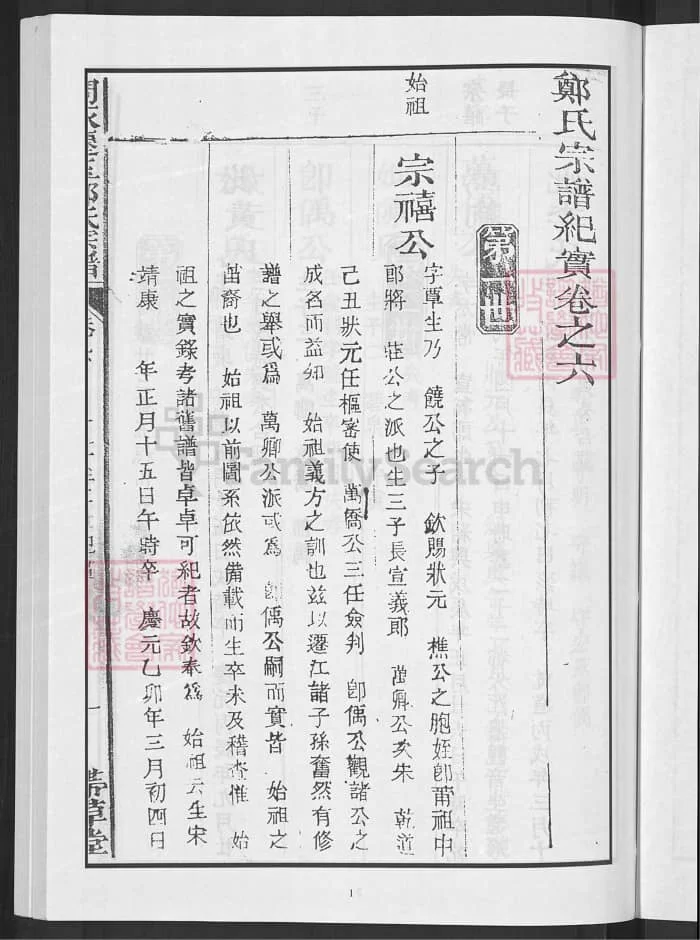 鄭氏宗譜紀實卷之六
第一世
始祖
宗禧公
字覃生乃 饒公之子 欽賜狀元 樵公之胞姪卽莆祖中
郎將 莊公之派也生三子長宣義郎 萬卿公次朱 乾道
己丑狀元任樞密使 萬僑公三任僉判 卽偶公觀諸公之
成名而益知 始祖義方之訓也兹以遷江諸子孫奮然有修
譜之舉或爲 萬卿公派或爲 卽偶公嗣而實皆 始祖之
苗裔也 始祖以前圖系依然備載而生卒未及稽查惟 始
祖之實錄考諸舊譜皆卓卓可紀者故欽奉爲 始祖云生宋
靖康 年正月十五日午時卒 慶元乙卯年三月初四日
氏宗譜
一
帶草堂
FamilySearch
1